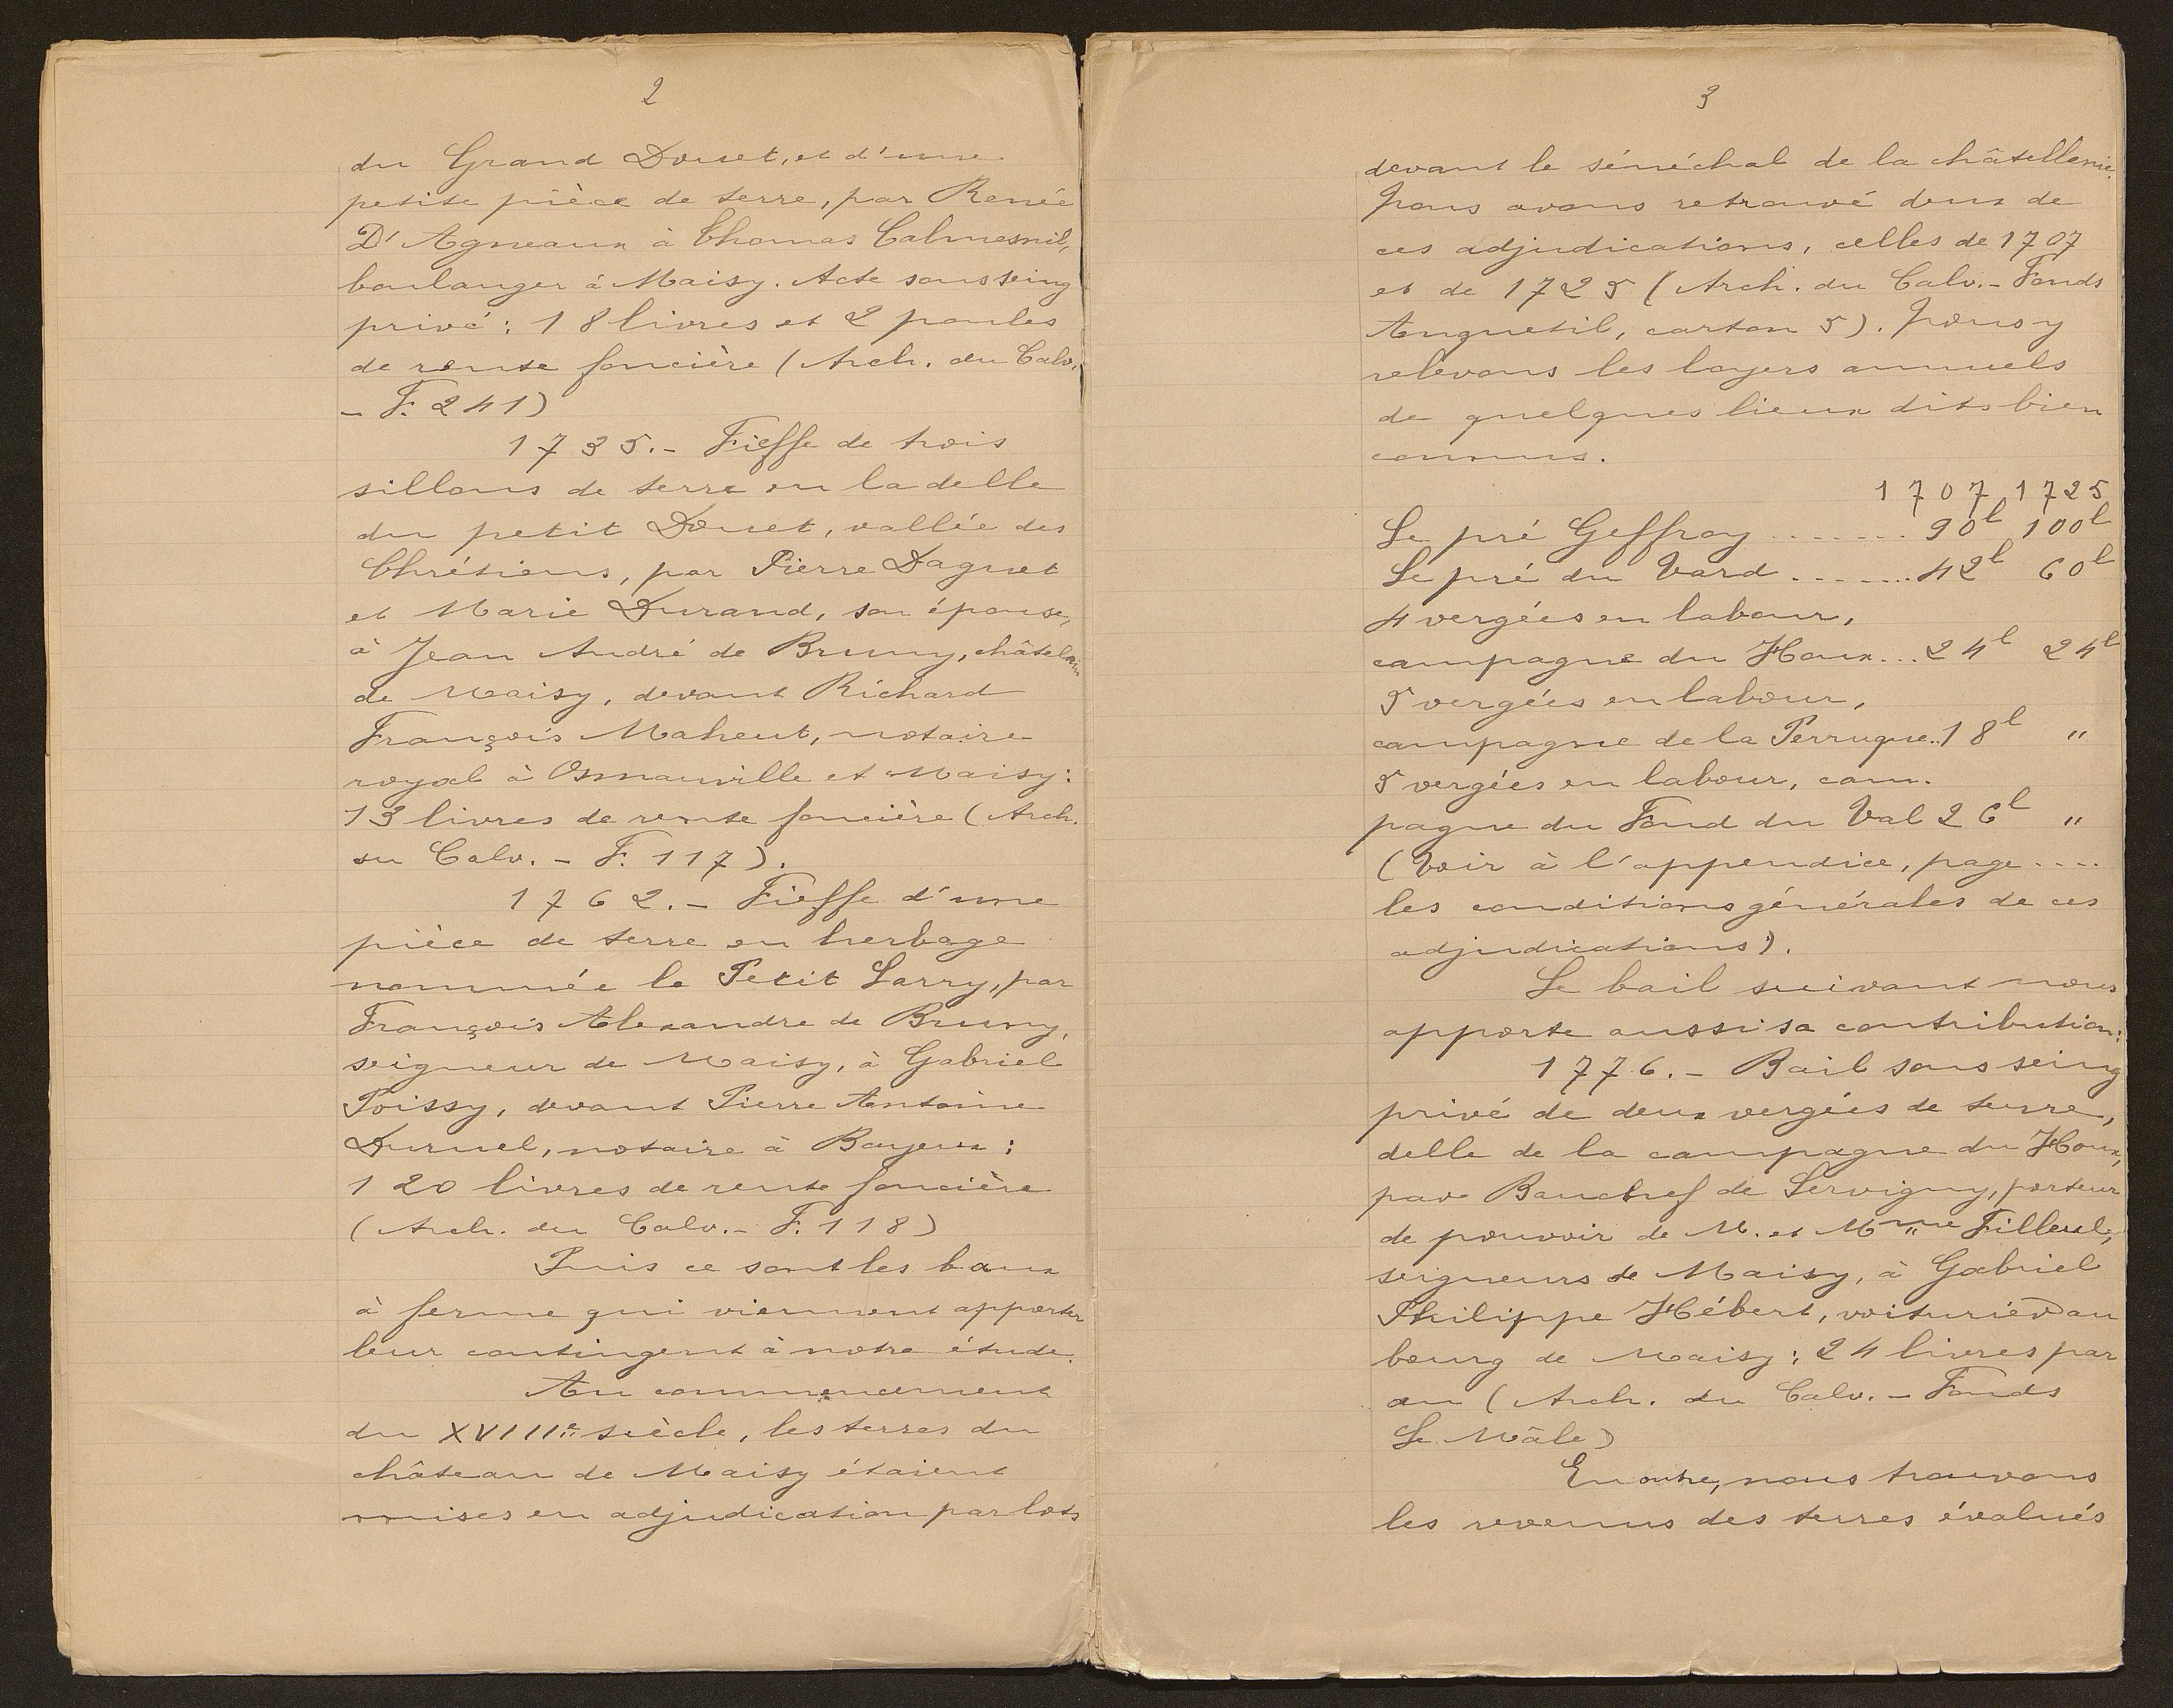 2
du Grand Douet, et d'une
petite pièce de terre, par Renée
D'Agneaux à Thomas Calmesnil,
boulanger à Maisy. Acte sous seing
privé : 18 livres et 2 poules
de rente foncière (Arch. du Calv.
– F. 241)
1735. – Fieffe de trois
sillons de terre en la delle
du petit Douet, vallée des
Chrétiens, par Pierre Daguet
et Marie Durand, son épouse,
à Jean André de Bruny, châtelain
de Maisy, devant Richard
François Maheut, notaire
royal à Osmanville et Maisy :
13 livres de rente foncière (Arch.
du Calv. – F. 117).
1762. – Fieffe d'une
pièce de terre en herbage
nommée le Petit Larry, par
François Alexandre de Bruny,
seigneur de Maisy, à Gabriel
Poissy, devant Pierre Antoine
Duruel, notaire à Bayeux :
120 livres de rente foncière
(Arch. du Calv. – F. 118)
Puis ce sont les baux
à ferme qui viennent apporter
leur contingent à notre étude.
Au commencement
du XVIIIe siècle, les terres du
château de Maisy étaient
mises en adjudication par lots
3
devant le sénéchal de la châtellenie.
Nous avons retrouvé deux de
ces adjudications, celles de 1707
et de 1725 (Arch. du Calv. – Fonds
Anquetil, carton 5). Nous y
relevons les loyers annuels
de quelques lieux dits bien
connus.
1707 1725
Le pré Geffroy ....... 90l 100l
Le pré du Vard ....... 42l 60l
4 vergées en labour,
campagne du Houx ... 24l 24l
5 vergées en labour,
campagne de la Perruque .. 18l "
5 vergées en labour, cam-
pagne du Fond du Val 26l "
(Voir à l'appendice, page ....
les conditions générales de ces
adjudications).
Le bail suivant nous
apporte aussi sa contribution :
1776. – Bail sous seing
privé de deux vergées de terre,
delle de la campagne du Houx,
par Bauchef de Servigny, porteur
de pouvoir de M. et Mme Filleul,
seigneurs de Maisy, à Gabriel
Philippe Hébert, voiturier au
bourg de Maisy : 24 livres par
an (Arch. du Calv. – Fonds
Le Mâle)
En outre, nous trouvons
les revenus des terres évalués